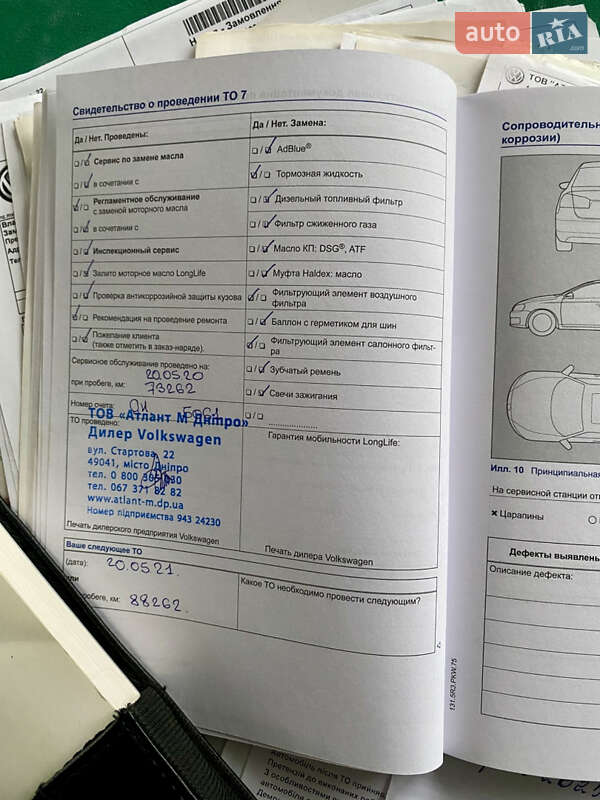 Н
- Замовлення
auto RIA .com
ТОВ "А
Свидетельство о проведении ТО 7
Да / Нет. Проведены:
Сервис по замене масла
в сочетании с
Регламентное обслуживание
с заменой моторного масла
в сочетании с
Инспекционный сервис
Залито моторное масло LongLife
Проверка антикоррозийной защиты кузова
Рекомендация на проведение ремонта
Пожелание клиента
(также отметить в заказ-наряде).
Сервисное обслуживание проведено на:
20.05.20
при пробеге, км: 73262
Номер счета:
ТО проведено:
ТОВ «Атлант М Дніпро»
Дилер Volkswagen
вул. Стартова, 22
49041, місто Дніпро
тел. 0 800 30
тел. 067 371 82 82
www.atlant-m.dp.ua
Номер підприємства 943 24230
Печать дилерского предприятия Volkswagen
Ваше следующее ТО
(дата): 20.05.21.
или
пробеге, км: 88262
Да / Нет. Замена:
AdBlue®
Тормозная жидкость
Дизельный топливный фильтр
Фильтр сжиженного газа
Масло КП; DSG®, ATF
Муфта Haldex: масло
Фильтрующий элемент воздушного
фильтра
Баллон с герметиком для шин
Фильтрующий элемент салонного фильт-
ра
Зубчатый ремень
Свечи зажигания
Гарантия мобильности LongLife:
Печать дилера Volkswagen
Какое ТО необходимо провести следующим?
131.5R3.PKW.75
Сопроводительн
коррозии)
Илл. 10 Принципиальная
На сервисной станции от
× Царапины
Дефекты выявлены
Описание дефекта:
Автомобіль після ТО прийня
Претензій до виконаних роб
З особливостями
автомобіля